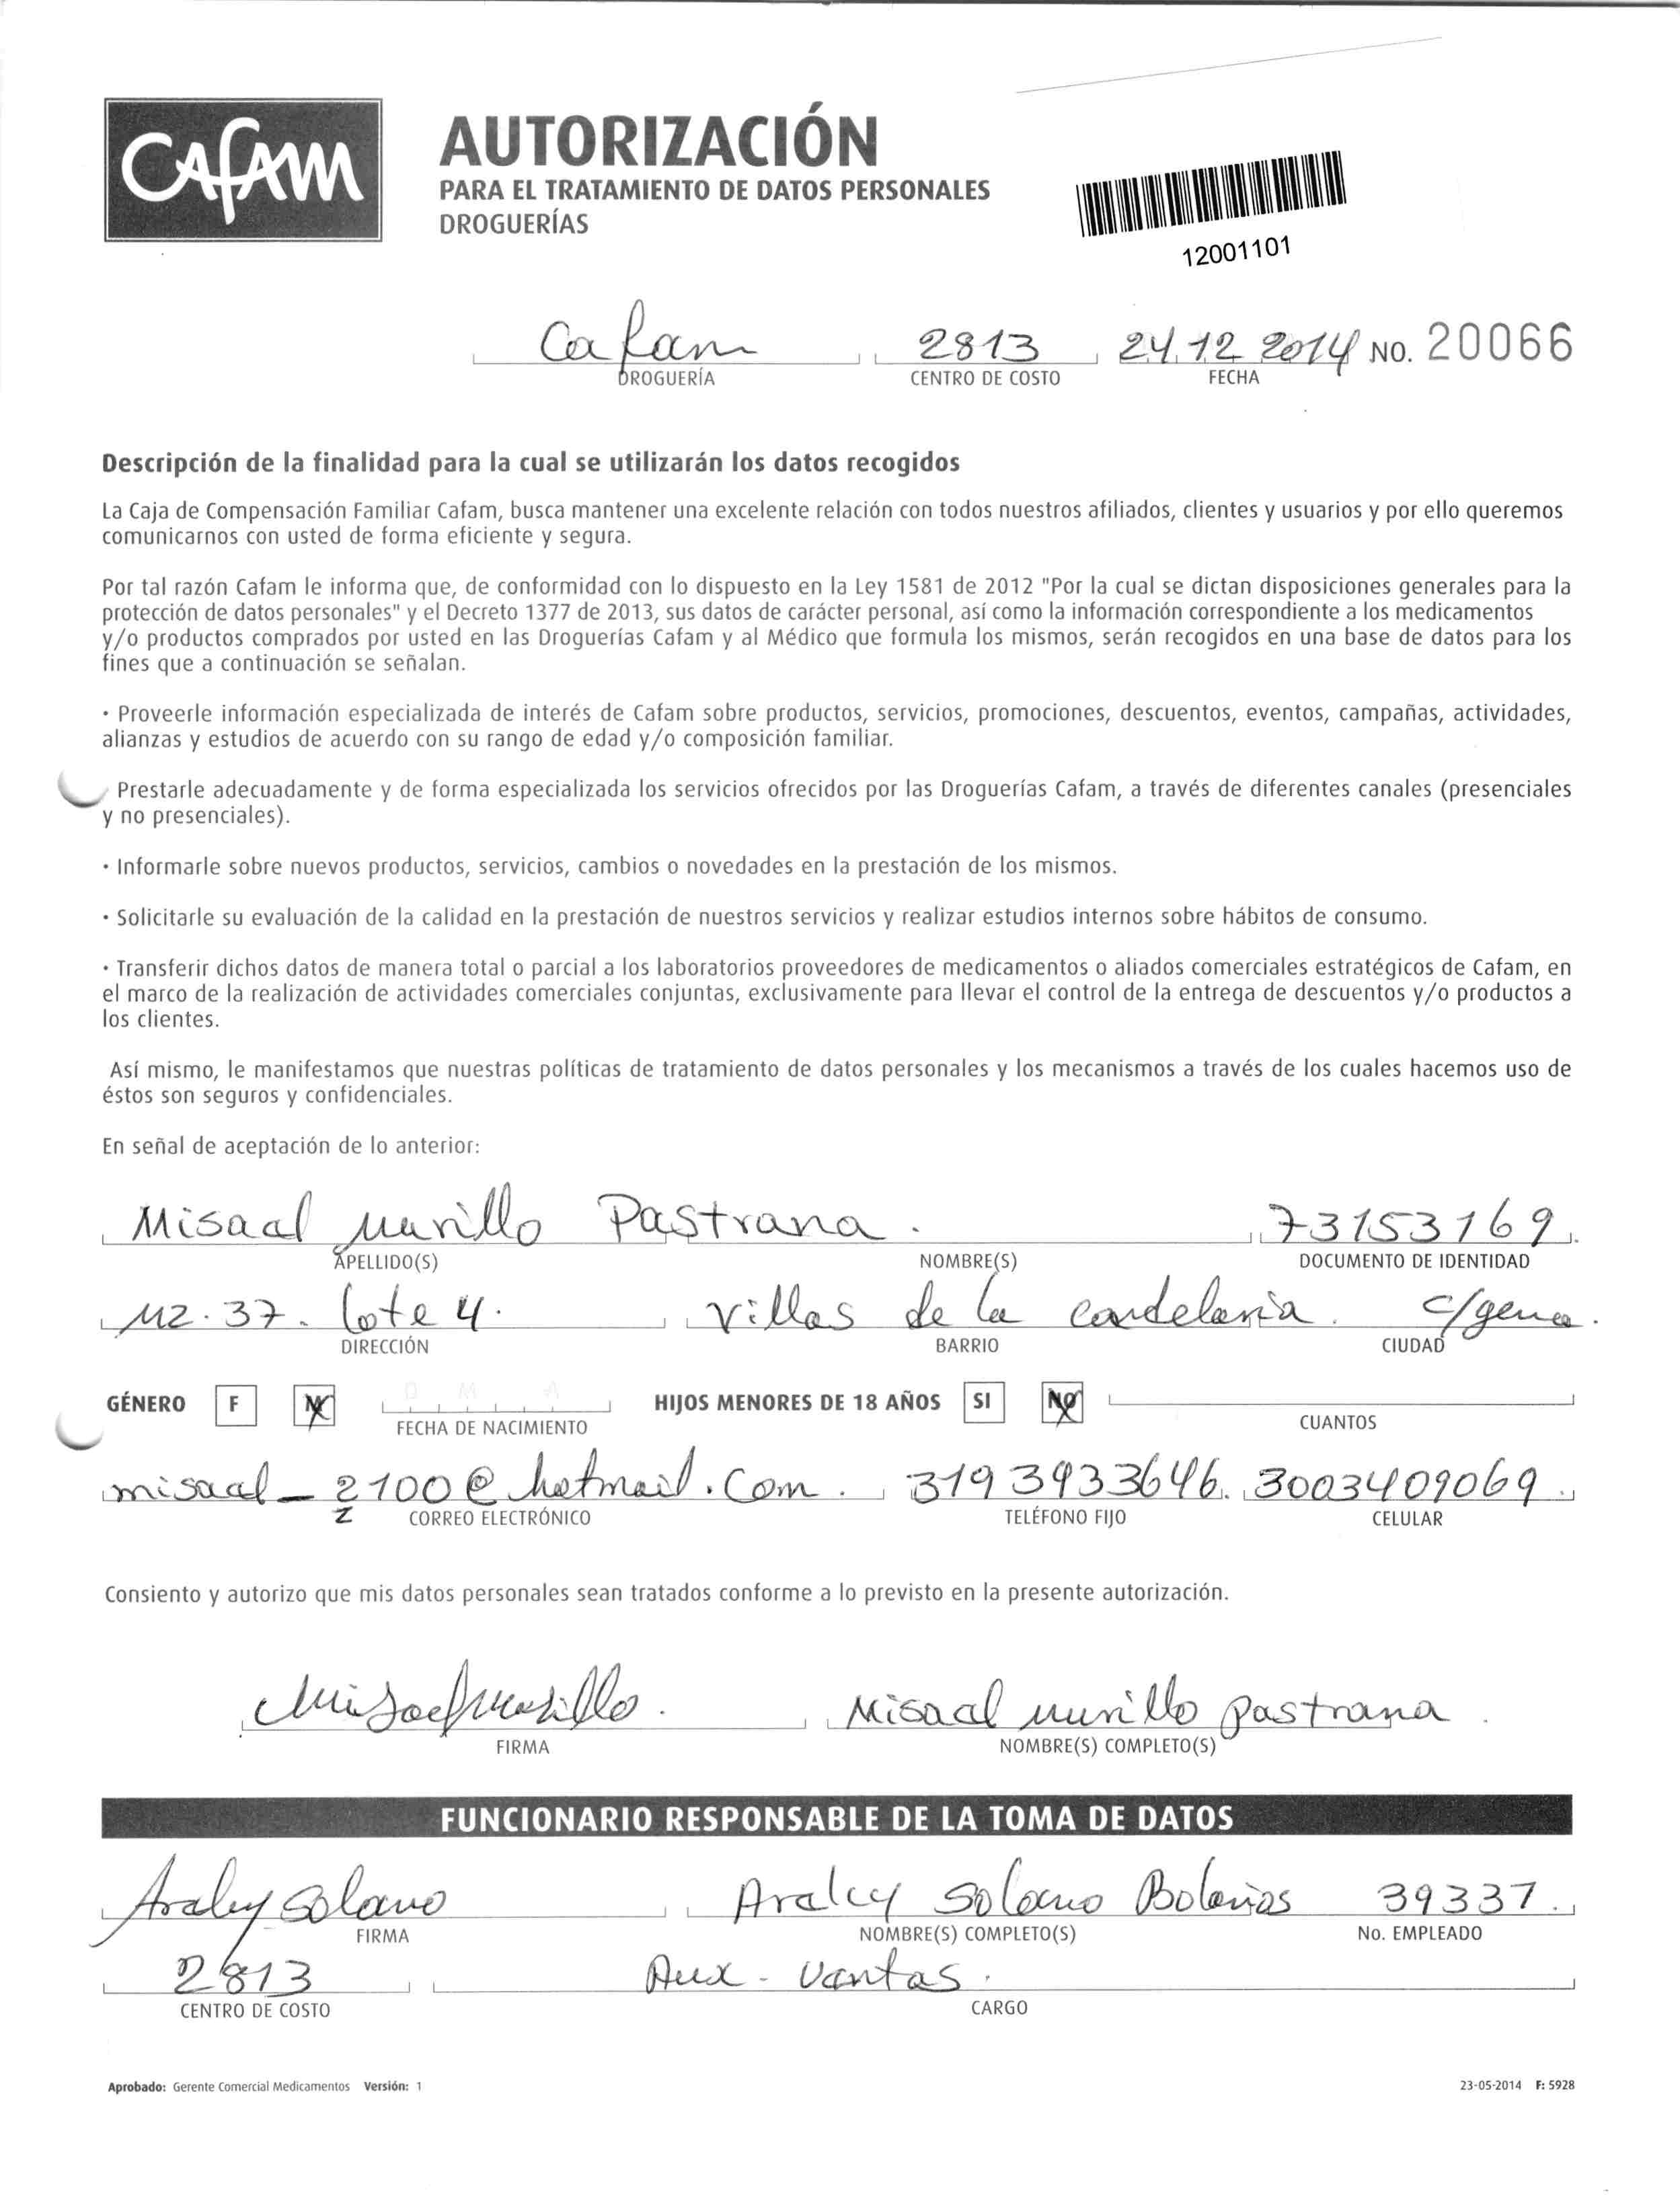 CAFAM
AUTORIZACIÓN
PARA EL TRATAMIENTO DE DATOS PERSONALES
DROGUERÍAS
12001101
Cafam 2813 24.12 2014 NO. 20066
DROGUERÍA CENTRO DE COSTO FECHA
Descripción de la finalidad para la cual se utilizarán los datos recogidos
La Caja de Compensación Familiar Cafam, busca mantener una excelente relación con todos nuestros afiliados, clientes y usuarios y por ello queremos
comunicarnos con usted de forma eficiente y segura.
Por tal razón Cafam le informa que, de conformidad con lo dispuesto en la Ley 1581 de 2012 "Por la cual se dictan disposiciones generales para la
protección de datos personales" y el Decreto 1377 de 2013, sus datos de carácter personal, así como la información correspondiente a los medicamentos
y/o productos comprados por usted en las Droguerías Cafam y al Médico que formula los mismos, serán recogidos en una base de datos para los
fines que a continuación se señalan.
· Proveerle información especializada de interés de Cafam sobre productos, servicios, promociones, descuentos, eventos, campañas, actividades,
alianzas y estudios de acuerdo con su rango de edad y/o composición familiar.
Prestarle adecuadamente y de forma especializada los servicios ofrecidos por las Droguerías Cafam, a través de diferentes canales (presenciales
y no presenciales).
· Informarle sobre nuevos productos, servicios, cambios o novedades en la prestación de los mismos.
· Solicitarle su evaluación de la calidad en la prestación de nuestros servicios y realizar estudios internos sobre hábitos de consumo.
· Transferir dichos datos de manera total o parcial a los laboratorios proveedores de medicamentos o aliados comerciales estratégicos de Cafam, en
el marco de la realización de actividades comerciales conjuntas, exclusivamente para llevar el control de la entrega de descuentos y/o productos a
los clientes.
Así mismo, le manifestamos que nuestras políticas de tratamiento de datos personales y los mecanismos a través de los cuales hacemos uso de
éstos son seguros y confidenciales.
En señal de aceptación de lo anterior:
Misael Murillo Pastrana. 73153169.
APELLIDO(S) NOMBRE(S) DOCUMENTO DE IDENTIDAD
MZ. 37. Lote 4. Villas de la candelaria. c/gena.
DIRECCIÓN BARRIO CIUDAD
GÉNERO F M D M A HIJOS MENORES DE 18 AÑOS SI NO
FECHA DE NACIMIENTO CUANTOS
misael_2100@hotmail.com. 3193933646. 3003409069.
Z CORREO ELECTRÓNICO TELÉFONO FIJO CELULAR
Consiento y autorizo que mis datos personales sean tratados conforme a lo previsto en la presente autorización.
Misael Murillo. Misael Murillo Pastrana.
FIRMA NOMBRE(S) COMPLETO(S)
FUNCIONARIO RESPONSABLE DE LA TOMA DE DATOS
Aralcy Solano Aralcy Solano Bolaños 39337.
FIRMA NOMBRE(S) COMPLETO(S) No. EMPLEADO
2813 Aux. Ventas.
CENTRO DE COSTO CARGO
Aprobado: Gerente Comercial Medicamentos Versión: 1 23-05-2014 F: 5928